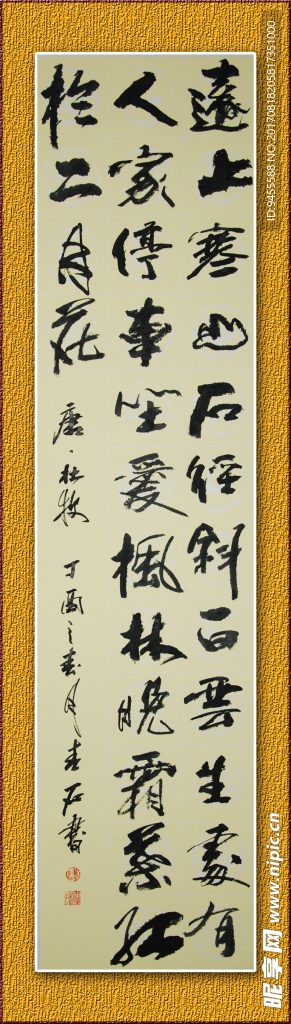 遠上寒山石徑斜白雲生處有
人家停車坐愛楓林晚霜葉紅
於二月花
唐·杜牧 丁酉之春月春石書
ID:9455588 NO:20170818205817351000
昵享网 www.nipic.cn